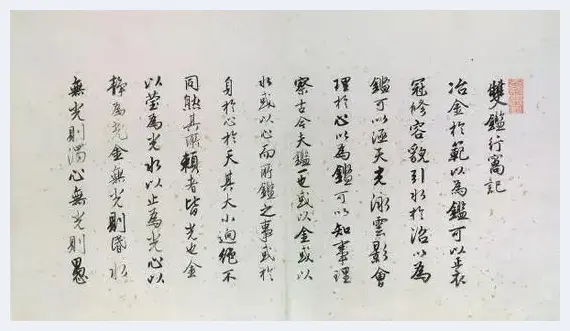 雙鑑行窩記
冶金於範以為鑑可以正衣
冠修容貌引水於沼以為
鑑可以涵天光泳雲影會
理於心以為鑑可以知事理
察古今夫鑑一也或以金或以
水或以心而所鑑之事或於
身於心於天其大小迥絕不
同然其所賴者皆光也金
以瑩為光水以止為光心以
靜為光金無光則昏水
無光則濁心無光則愚